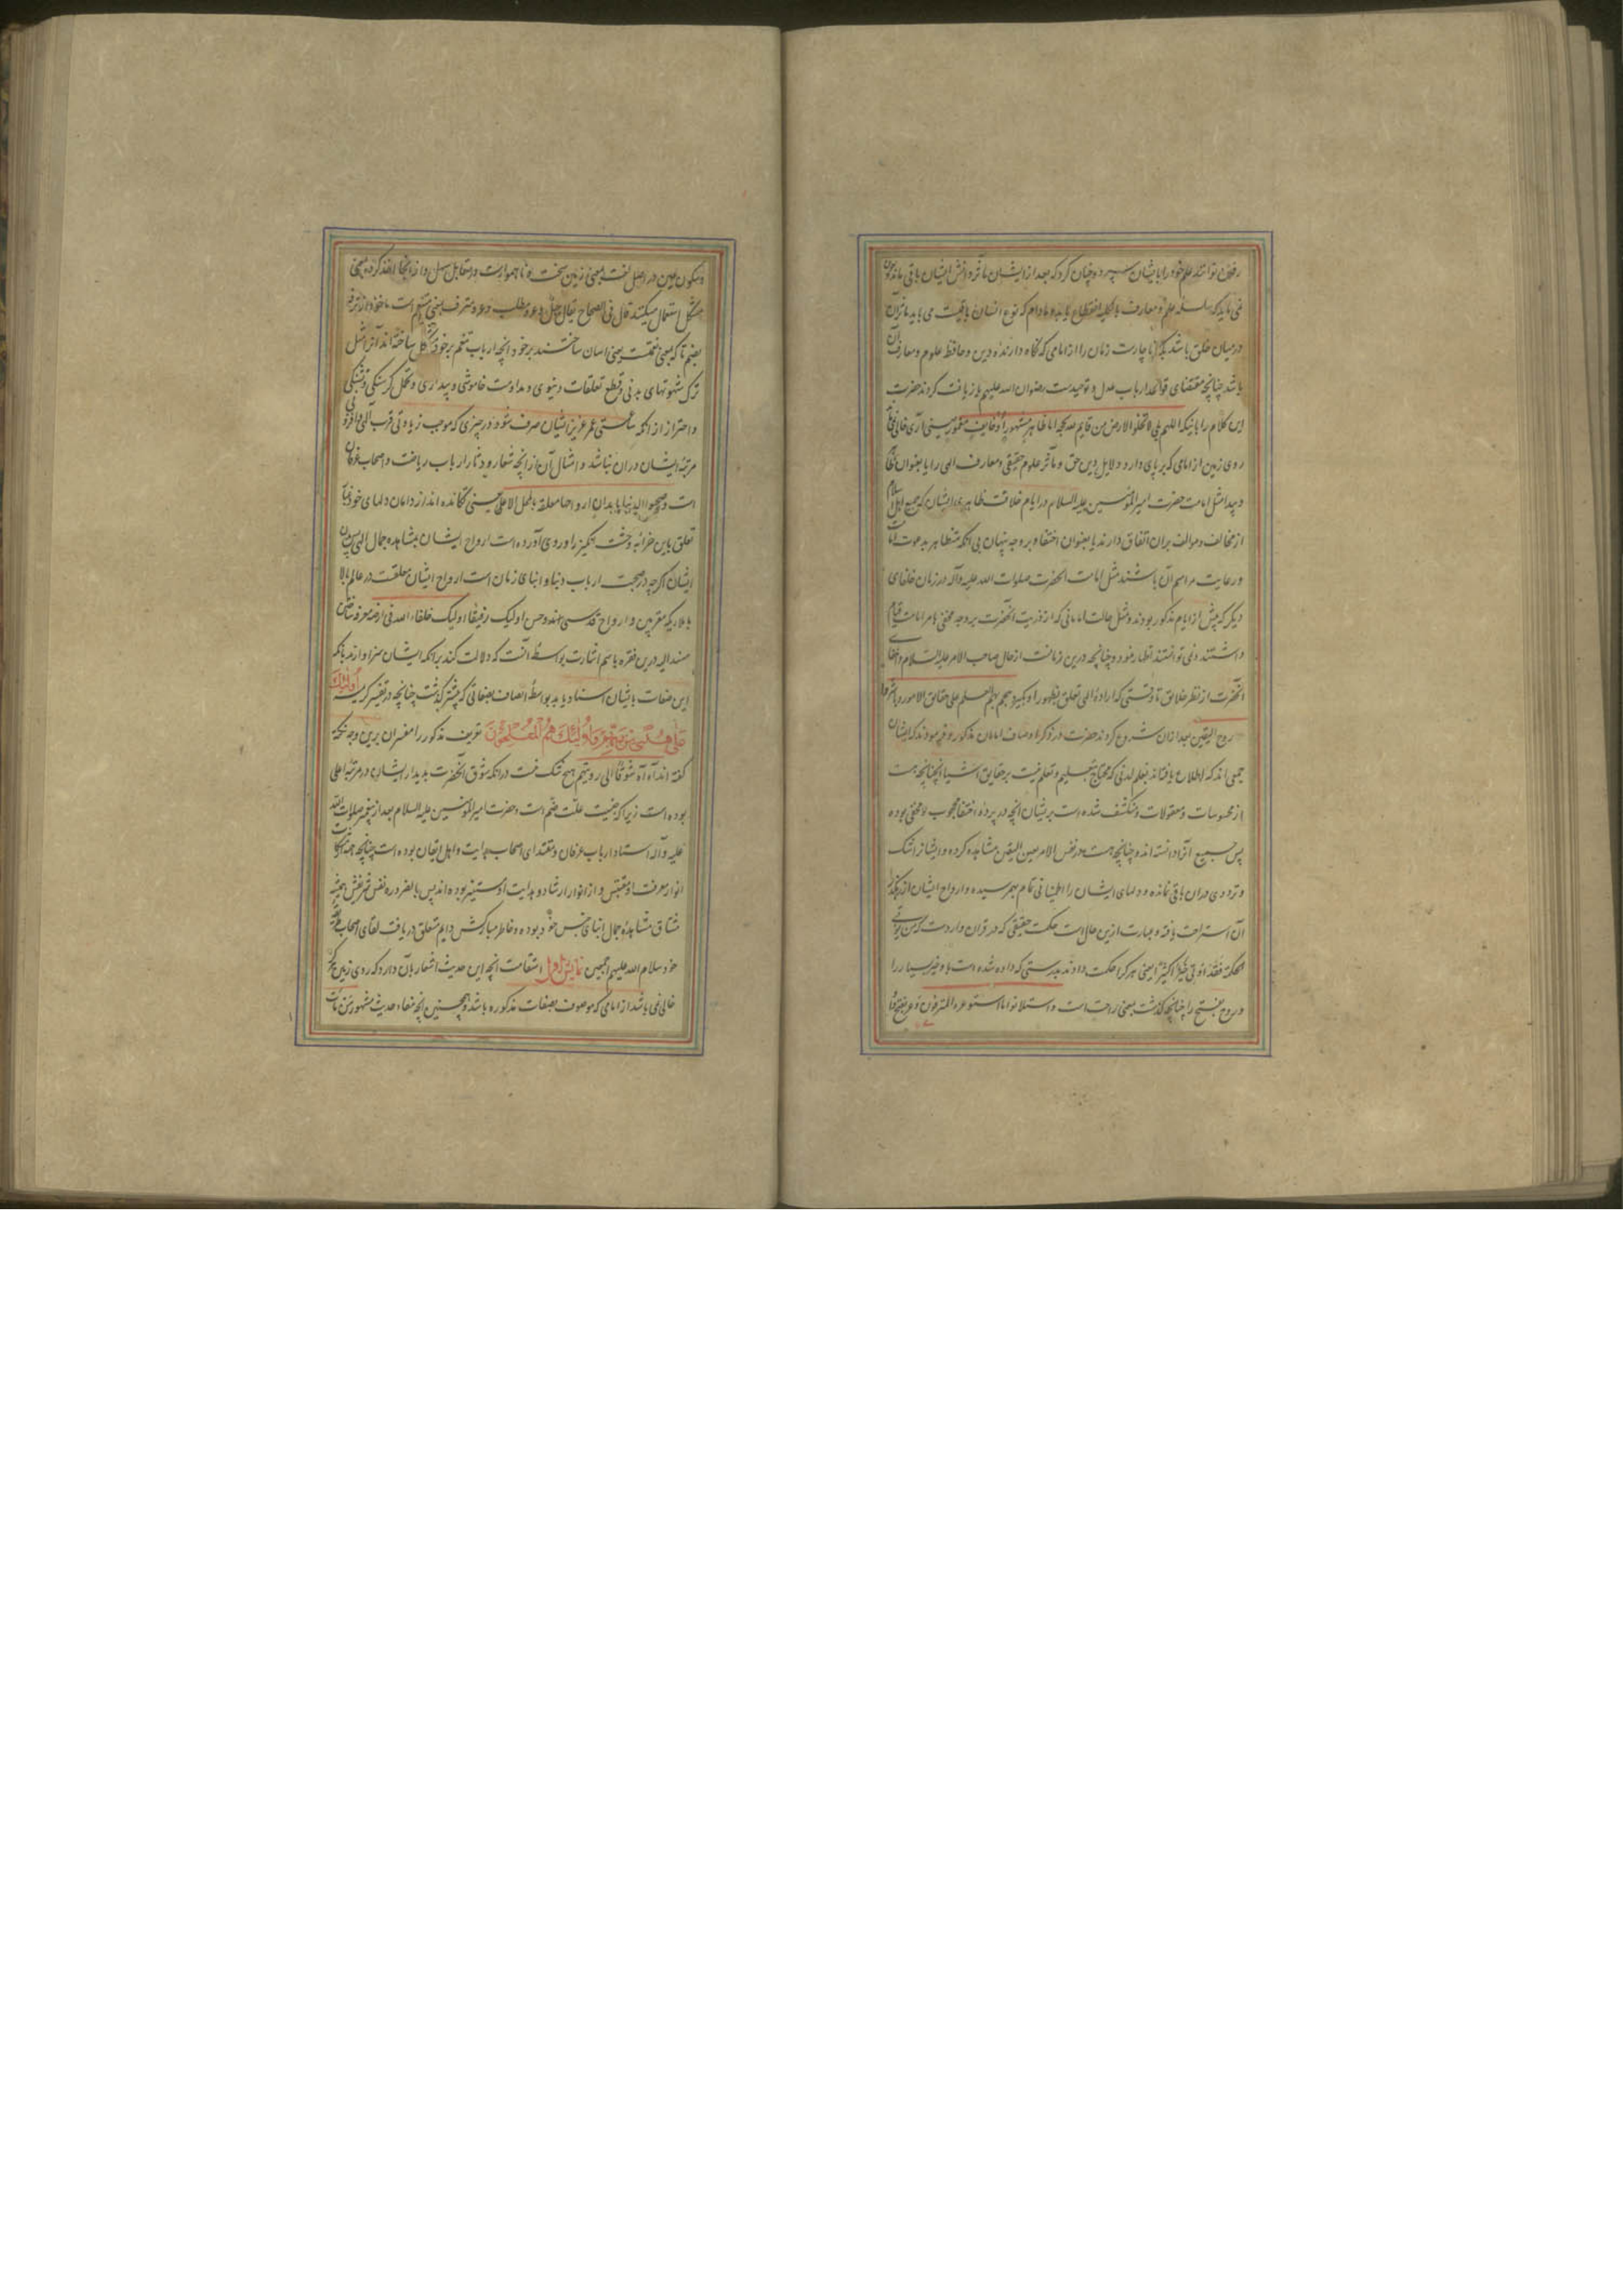 رفتن توانند علم خود را بایشان سپرد و چنان کرد که بعد از ایشان مآثر دانش ایشان باقی ماند چون
نمی باید که سلسله علم و معارف بالکلیه انقطاع یابد و مادام که نوع انسان باقیست می باید مآثر آن
در میان خلق باشد ناچارست زمان را از امامی که نگاه دارنده دین و حافظ علوم و معارف آن
باشد چنانچه مقتضای قواعد ارباب عدل و توحیدست رضوان الله علیهم باز یافت کردند حضرت
این کلام را باینکه اللهم بلی لا تخلو الارض من قایم لله بحجة اما ظاهر مشهورا او خایف مغمور یعنی آری خالی
روی زمین از امامی که بر پای دارد دلایل دین حق و مآثر علوم حقیقی و معارف الهی را یا بعنوان
و پیدا مثل امامت حضرت امیر المؤمنین علیه السلام در ایام خلافت ظاهری ایشان که جمیع اهل اسلام
از مخالف و موالف بران اتفاق دارند یا بعنوان اختفا و بر وجه پنهان بی آنکه متظاهر بدعوت امامت
و رعایت مراسم آن باشند مثل امامت آنحضرت صلوات الله علیه و آله در زمان خلفای
دیگر که پیش از ایام مذکور بودند و مثل حالت امامانی که از ذریت آنحضرت بر وجه مخفی بامر امامت قیام
داشتند و نمی توانستند اظهار نمود و چنانچه درین زمانست از حال صاحب الامر علیه السلام و خفای
آنحضرت از نظر خلایق تا وقتی که اراده الهی تعلق بظهور او بگیرد هجم بهم العلم علی حقایق الامور و باشروا
روح الیقین بعد از ان شروع کردند حضرت در ذکر اوصاف امامان مذکور و فرمودند که ایشان
جمعی اند که اطلاع یافته اند بعلم لدنی که محتاج بتعلیم و تعلم نیست بر حقایق اشیا آنچنانچه هست
از محسوسات و معقولات و منکشف شده است بر ایشان آنچه در پرده اختفا محجوب و مخفی بوده
پس جمیع آنرا دانسته اند و چنانچه هست در نفس الامر بعین الیقین مشاهده کرده و ایشانرا شک
و ترددی در ان باقی نمانده و دلهای ایشان را اطمینانی تمام بهم رسیده و ارواح ایشان از
آن استراحت یافته و عبارت ازین حال است حکمت حقیقی که در قران واردست که و من یؤتی
الحکمة فقد اوتی خیرا کثیرا یعنی هر کرا حکمت دادند بدرستی که داده شده است باو خیر بسیار را
و روح بفتح را چنانچه گذشت بمعنی راحت است و استلانوا ما استوعره المترفون وعر بفتح واو
و سکون عین در اصل لغت بمعنی زمین سخت و ناهموارست در مقابل سهل و از انجا اخذ کرده بمعنی
مشکل استعمال میکنند قال فی الصحاح یقال جبل وعر و مطلب وعر و مترف بمعنی متنعم است ماخوذ از ترفه
بضم تا که بمعنی نعمتست یعنی آسان ساختند بر خود آنچه ارباب تنعم بر خود مشکل ساخته اند آنرا مثل
ترک شهوتهای بدنی و قطع تعلقات دنیوی و مداومت خاموشی و بیداری و تحمل گرسنگی و تشنگی
و احتراز از آنکه ساعتی عمر عزیز ایشان صرف شود در چیزی که موجب زیادتی قرب الهی و افزونی
مرتبه ایشان در ان نباشد و امثال آن از آنچه شعار و دثار ارباب ریاضت و اصحاب عرفان
است و صحبوا الدنیا بابدان ارواحها معلقة بالمحل الاعلی یعنی تکانده اند از دامان دلهای خود
تعلق باین خرابه وحشت انگیز را و روی آورده است ارواح ایشان بمشاهده جمال الهی پس بدن
ایشان اگرچه در صحبت ارباب دنیا و ابنای زمان است ارواح ایشان معلقست در عالم بالا
با ملایکه مقربین و ارواح قدسی همند و حسن اولیک رفیقا اولیک خلفاء الله فی ارضه معرفه ساختن
مسند الیه درین فقره باسم اشارت بواسطه آنست که دلالت کند بر آنکه ایشان سزاوارند بآنکه
این صفات بایشان اسناد یابد بواسطه اتصاف بصفاتی که پیشتر گذشت چنانچه در تفسیر کریمه أُولَئِكَ
عَلَى هُدًى مِنْ رَبِّهِمْ وَأُولَئِكَ هُمُ الْمُفْلِحُونَ تعریف مذکور را مفسران برین وجه نکته
گفته اند آه آه شوقا الی رویتهم هیچ شک نیست در آنکه شوق آنحضرت بدیدار ایشان در مرتبه اعلی
بوده است زیرا که جنسیت علت ضم است و حضرت امیر المؤمنین علیه السلام بعد از پیغمبر صلوات الله
علیه و آله استاد ارباب عرفان و مقتدای اصحاب هدایت و اهل ایقان بوده است چنانچه همه
انوار معرفت او مقتبس و از انوار ارشاد و هدایت او مستنیر بوده اند پس بالضروره نفس شریفش همیشه
مشتاق مشاهده جمال ابنای جنس خود بوده و خاطر مبارکش دایم متعلق دریافت لقای اصحاب
خود سلام الله علیهم اجمعین نمایش اول استقامت آنچه این حدیث اشعار بآن دارد که روی زمین هرگز
خالی نمی باشد از امامی که موصوف بصفات مذکوره باشد و همچنین آنچه مفاد حدیث مشهور من مات